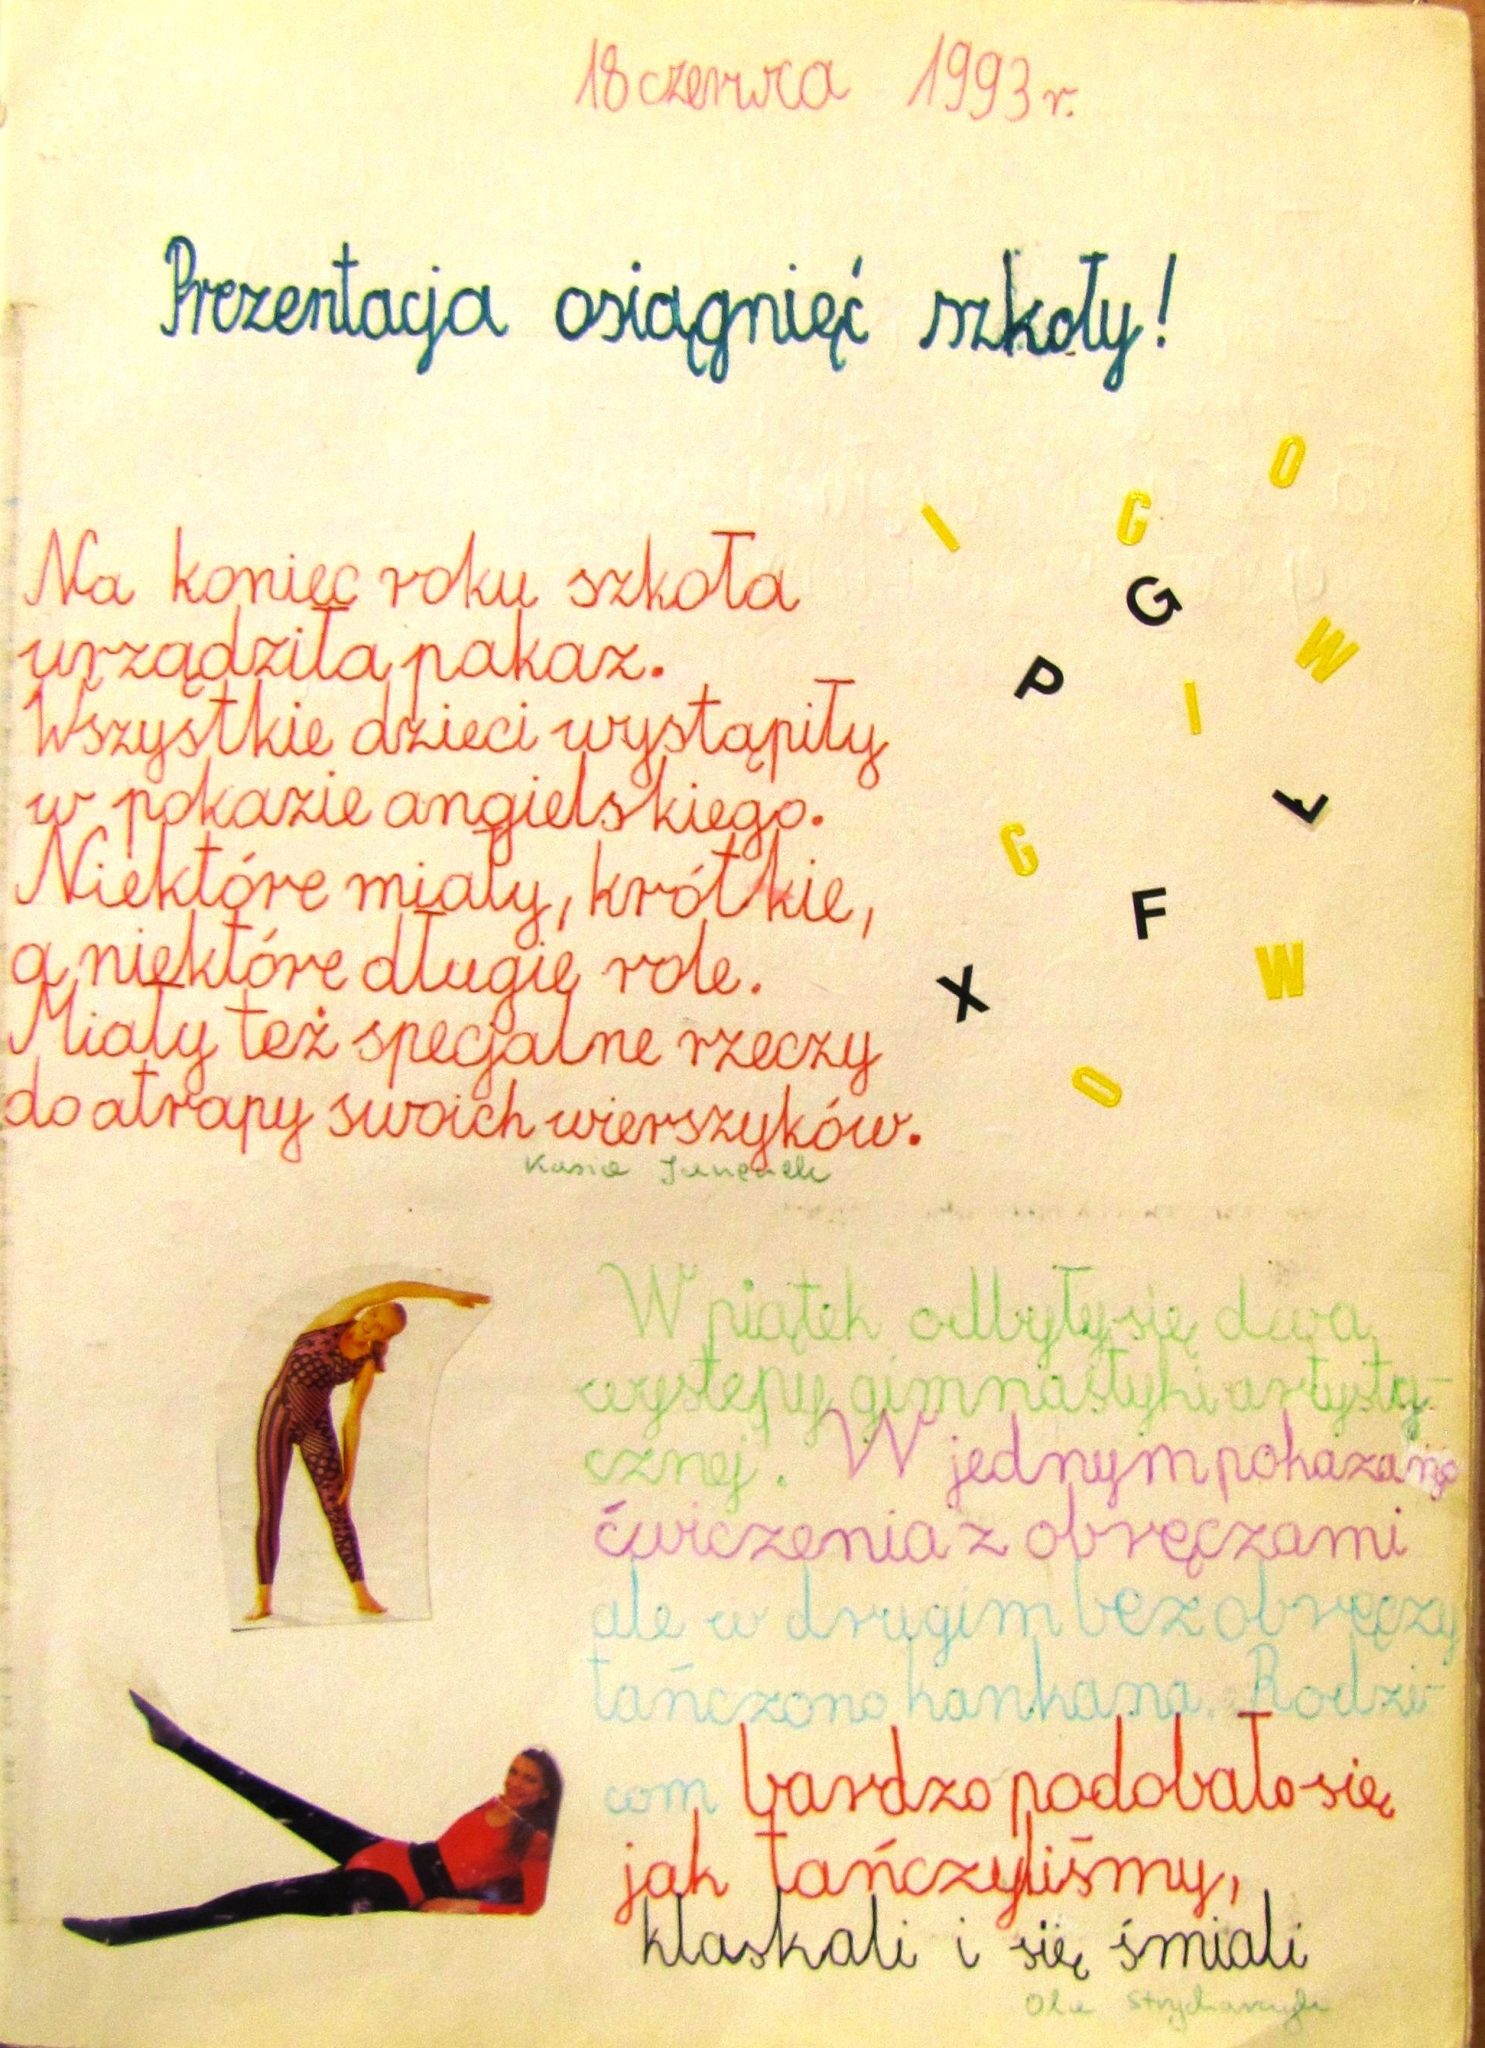 18 czerwca 1993 r.
Prezentacja osiągnięć szkoły!
Na koniec roku szkoła
urządziła pakaz.
Wszystkie dzieci wystąpiły
w pokazie angielskiego.
Niektóre miały, krótkie,
a niektóre długie role.
Miały też specjalne rzeczy
do atrapy swoich wierszyków.
Kasia
I G O
G
W
P
I
L
G
F
W
X
O
W piątek odbyły się dwa
występy gimnastyki artysty-
cznej. W jednym pokazano
ćwiczenia z obręczami
ale w drugim bez obręczy
tańczono kankana. Rodzi-
com bardzo podobało się
jak tańczyliśmy,
klaskali i się śmiali
Ola